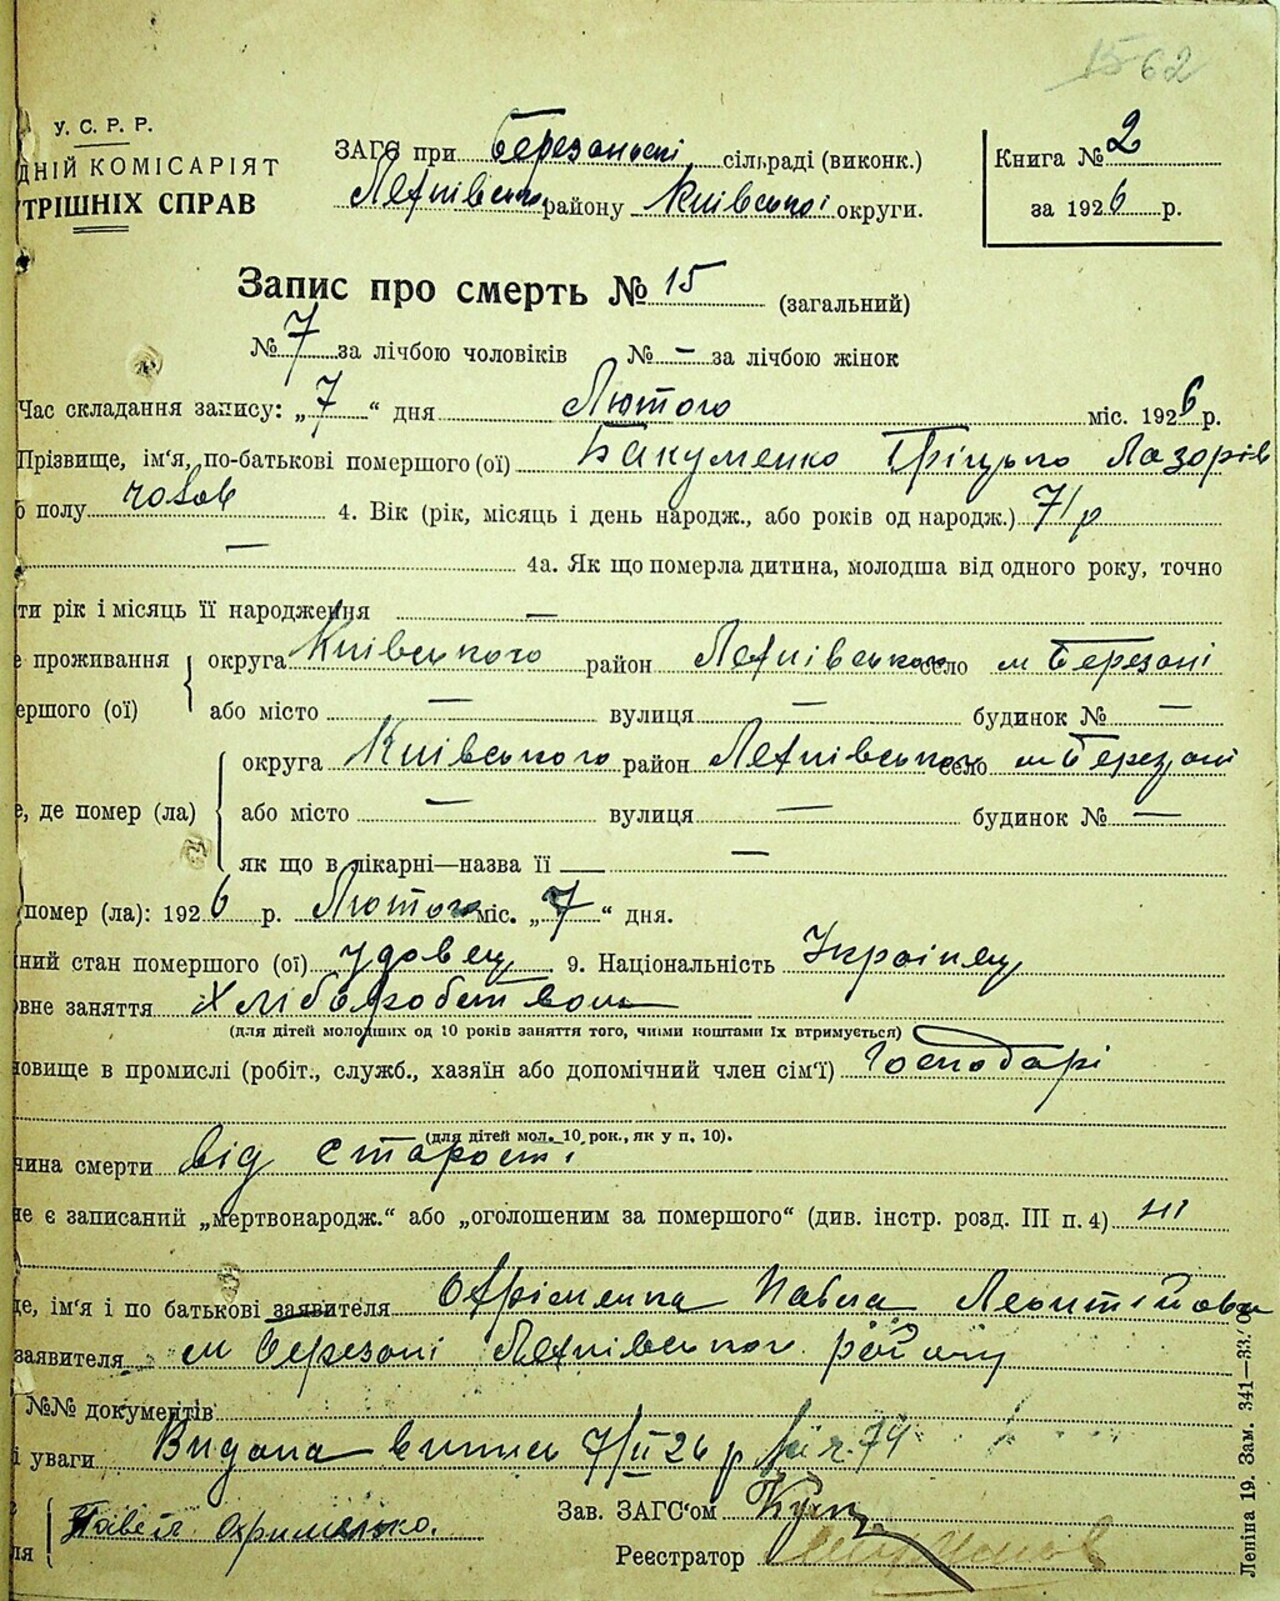 62
У. С. Р. Р.
ДНІЙ КОМІСАРІЯТ
ТРІШНІХ СПРАВ
ЗАГС при Березанські сільраді (виконк.)
району Київської округи.
Книга № 2
за 1926 р.
Запис про смерть № 15 (загальний)
№ 7 за лічбою чоловіків № — за лічбою жінок
Час складання запису: „7“ дня Лютого міс. 1926 р.
Прізвище, ім'я, по-батькові помершого (ої) Бакуменко Грицько Лазорів
полу чолов 4. Вік (рік, місяць і день народж., або років од народж.) 71 р
— 4а. Як що померла дитина, молодша від одного року, точно
ти рік і місяць її народження —
проживання округа Київського район село м Березані
ершого (ої) або місто — вулиця — будинок № —
округа Київського район село м Березані
е, де помер (ла) або місто — вулиця — будинок № —
як що в лікарні—назва її —
помер (ла): 1926 р. Лютого міс. „7“ дня.
ний стан помершого (ої) удовец 9. Національність Українец
вне заняття Хліборобством
(для дітей молодших од 10 років заняття того, чиїми коштами їх втримується)
овище в промислі (робіт., служб., хазяїн або допомічний член сім'ї) Господарі
(для дітей мол. 10 рок., як у п. 10).
чина смерти від старості
не є записаний „мертвонародж.“ або „оголошеним за помершого“ (див. інстр. розд. III п. 4) ні
ще, ім'я і по батькові заявителя Охріменка Павла
заявителя м Березані району
№№ документів
уваги Видана випись 7/II 26 р 79
Павел Охрименко.
Зав. ЗАГС'ом
Реєстратор
Леніна 19. Зам. 341—33.